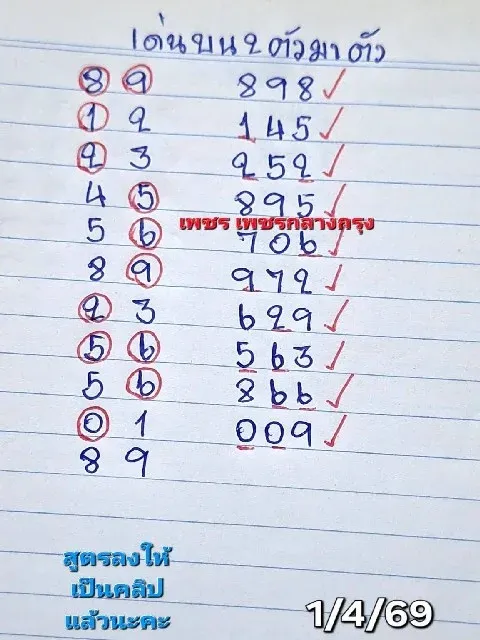 เด่นบน 2 ตัวมา ตัว
8 9 898 ✓
1 2 145 ✓
2 3 252 ✓
4 5 895 ✓
เพชร เพชรกลางกรุง
5 6 706 ✓
8 9 972 ✓
2 3 629 ✓
5 6 563 ✓
5 6 866 ✓
0 1 009 ✓
8 9
สูตรลงให้
เป็นคลิป
แล้วนะคะ
1/4/69